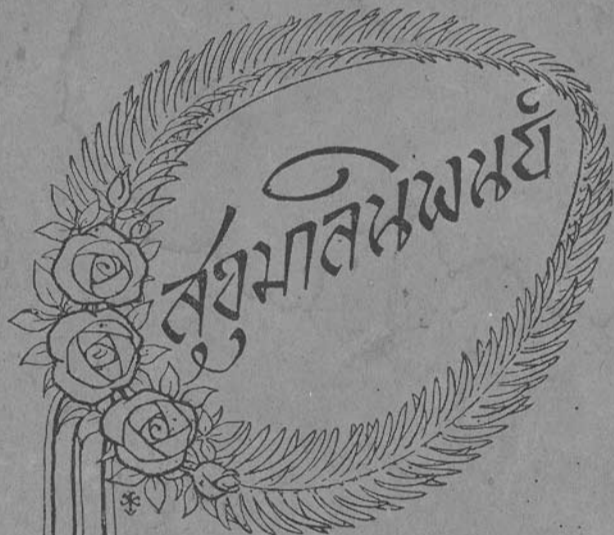 สุขุมาลนิพนธ์